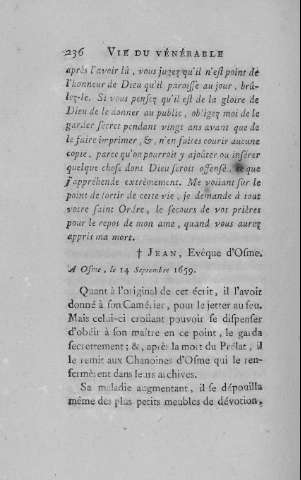 236 VIE DU VÉNÉRABLE
après l'avoir lû, vous jugez qu'il n'est point de
l'honneur de Dieu qu'il paroisse au jour, brû-
lez-le. Si vous pensez qu'il est de la gloire de
Dieu de le donner au public, obligez moi de le
garder secret pendant vingt ans avant que de
le faire imprimer, &, n'en faites courir aucune
copie, parce qu'on pourroit y ajoûter ou insérer
quelque chose dont Dieu seroit offensé, que
j'appréhende extrêmement. Me voïant sur le
point de sortir de cette vie, je demande à tout
votre saint Ordre, le secours de vos prières
pour le repos de mon ame, quand vous aurez
appris ma mort.
† JEAN, Evêque d'Osme.
A Osme, le 14 Septembre 1659.
Quant à l'original de cet écrit, il l'avoit
donné à son Camérier, pour le jetter au feu.
Mais celui-ci croïant pouvoir se dispenser
d'obéir à son maître en ce point, le garda
secrettement; &, après la mort du Prélat, il
le remit aux Chanoines d'Osme qui le ren-
fermèrent dans leurs archives.
Sa maladie augmentant, il se dépouilla
même des plus petits meubles de dévotion,